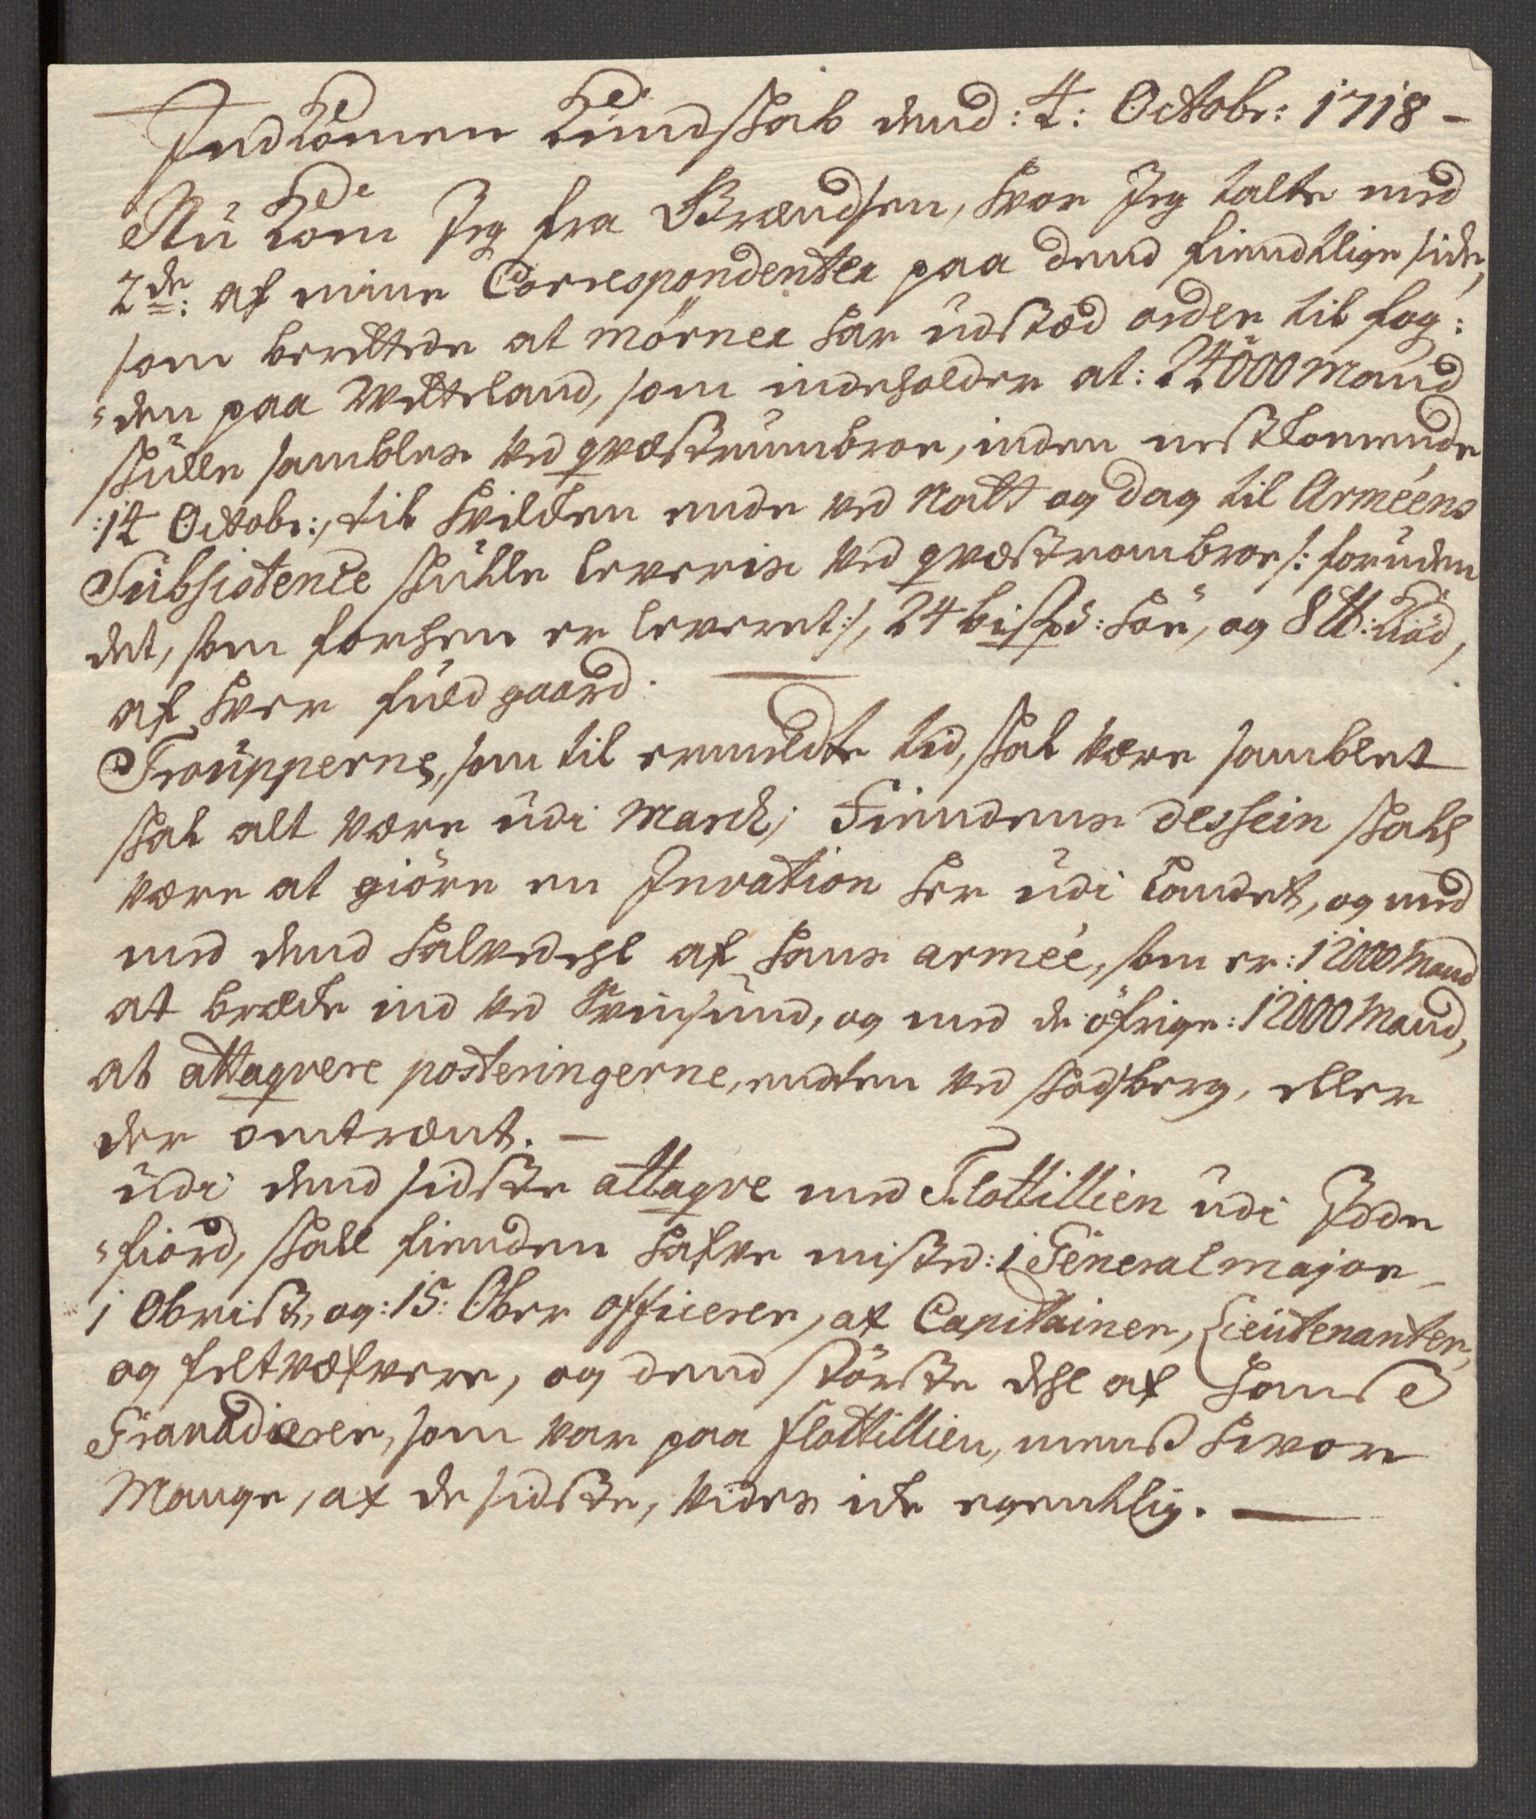 Indkomen Kundskab dend: 4: Octobr: 1718 –
Nu kom Jeg fra Grændsen, hvor Jeg talte med
2de: af mine Correspondenter paa dend fiendtlige side,
som berettede at Mörner har udstæd ordre til fog:
"den paa Wetteland, som indeholder at: 24000 Mand
skulle sambles ved qvæstrumbroe, inden nestkomende
:14 Octobr:, til hvilken ende ved Natt og dag til Arméens
Subsistence skulle leveris ved qvæstrombroe /: foruden
det, som forhen er leveret :/, 24 bispd: höe, og 8 ℔: kiöd,
af hver fuld gaard.
Troupperne, som til ermeldte tid, skal være samblet
skal alt være udi March; Fiendens dessein skall
være at giöre en Invation her udi Landet, og med
med dend halvedehl af hans armée, som er: 12000 Mand
at bræcke ind ved Svinsund, og med de öfrige: 12000 Mand,
at attaqvere posteringerne, enten ved skodsberg, eller
der omtrænt. –
udi dend sidste attaqve med Flottillien udi Idde
"fiord, skall fienden hafve misted: 1 General major
1 Obrist, og: 15: Ober officerer, af Capitainer, Lieutenanter,
og feltvæfvere, og dend störste dehl af hans
Granadierer, som var paa flottillien, mens hvor
Mange, af de sidste, vides icke egentlig. –